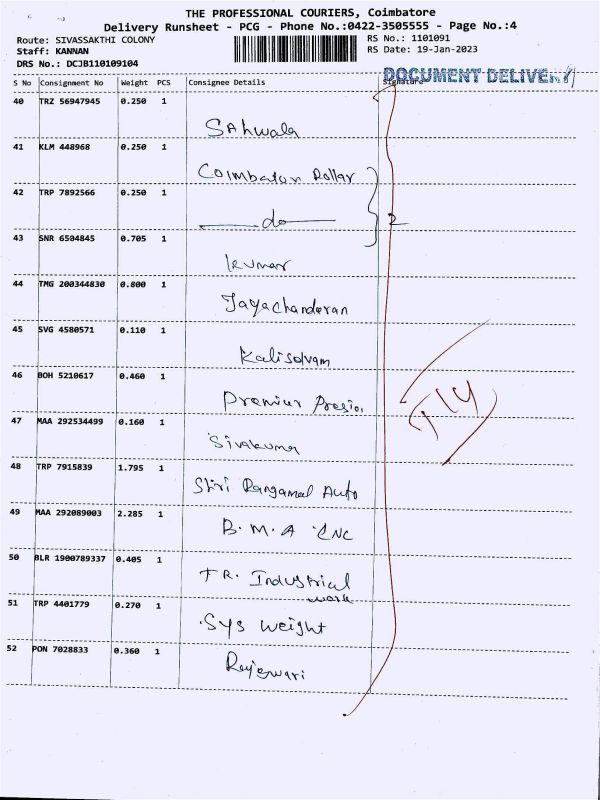 THE PROFESSIONAL COURIERS, Coimbatore
Delivery Runsheet - PCG - Phone No.:0422-3505555 - Page No.:4
Route: SIVASSAKTHI COLONY RS No.: 1101091
Staff: KANNAN RS Date: 19-Jan-2023
DRS No.: DCJB110109104
DOCUMENT DELIVERY
S No Consignment No Weight PCS Consignee Details Signature
40 TRZ 56947945 0.250 1
Sahwala
41 KLM 448968 0.250 1
Coimbatore Rollar
42 TRP 7892566 0.250 1
do 2
43 SNR 6504845 0.705 1
kumar
44 TMG 200344830 0.800 1
Jayachanderan
45 SVG 4580571 0.110 1
Kaliselvam
46 BOH 5210617 0.460 1
47 MAA 292534499 0.160 1
Sivakumar
48 TRP 7915839 1.795 1
Shri Rangamal Auto
49 MAA 292089003 2.285 1
B.M.A CNC
50 BLR 1900789337 0.405 1
T R. Industrial
work
51 TRP 4401779 0.270 1
Sys weight
52 PON 7028833 0.360 1
Rajeswari